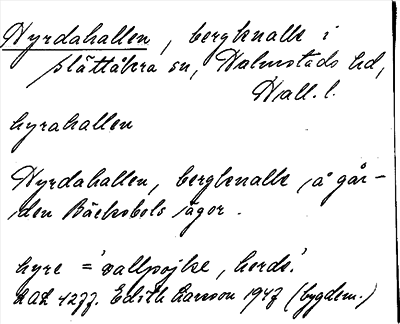 Hyrdahallen, bergknalle i
Slättåkra sn, Halmstads hd,
Hall. l.
hyrahallen
Hyrdahallen, bergknalle på går-
den Bäckabols ägor.
hyre = 'vallpojke, herde'.
LAL 4277. Edith Larsson 1947 (bygdem.)